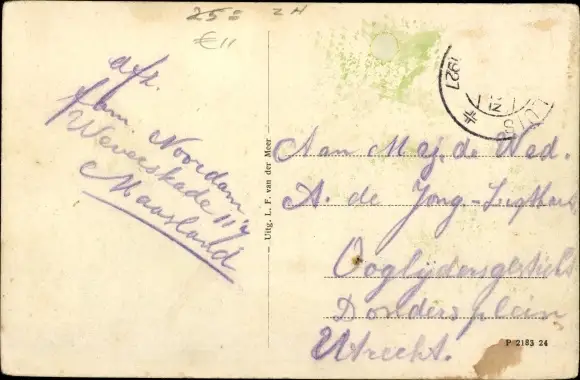 25=
ZH
€11
afz.
fam. Noordam
Weverskade 117
Maasland
Uitg. L. F. van der Meer
1927
12
Aan Mej. de Wed.
A. de Jong-
Ooglijdersgesticht
Dondersplein
Utrecht.
P 2183 24